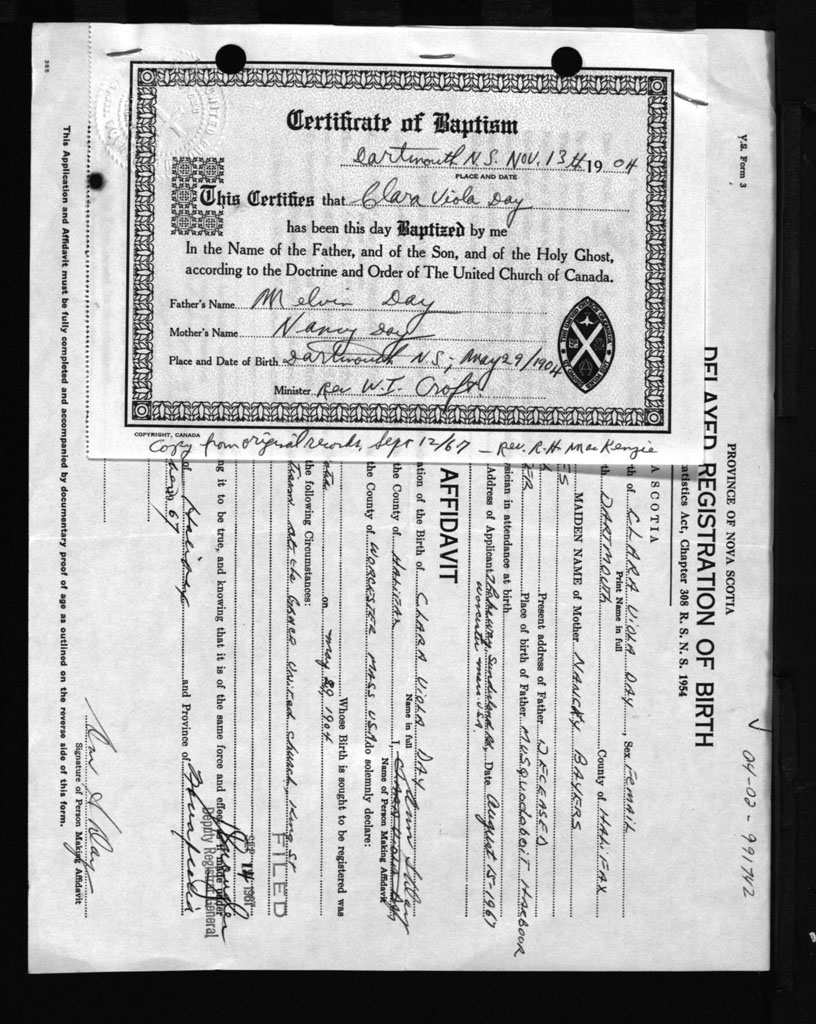 Certificate of Baptism
Dartmouth N.S. Nov. 13th 1904
PLACE AND DATE
This Certifies that Clara Viola Day
has been this day Baptized by me
In the Name of the Father, and of the Son, and of the Holy Ghost,
according to the Doctrine and Order of The United Church of Canada.
Father's Name Melvin Day
Mother's Name Nancy Day
Place and Date of Birth Dartmouth N.S; May 29/1904
Minister Rev W.I. Croft.
COPYRIGHT, CANADA
Copy from original records, Sept 12/67 – Rev. R.H. MacKenzie
V.S. Form 3
04-02-991742
PROVINCE OF NOVA SCOTIA
DELAYED REGISTRATION OF BIRTH
atistics Act, Chapter 308 R. S. N. S. 1954
A SCOTIA
th of CLARA VIOLA DAY, Sex FEMAIL
Print Name in full
th DARTMOUTH County of HALIFAX
ES MAIDEN NAME of Mother NANCKY BAYERS
Present address of Father DECEASED
Place of birth of Father MUSQUODOBOIT HARBOUR
sician in attendance at birth
Address of Applicant Sunderland Rd, Date August 15-1967
Worcester Mass. USA.
AFFIDAVIT
ation of the Birth of CLARA VIOLA DAY
Name in full
the County of HALIFAX I,
Name of Person Making Affidavit
the County of WORCESTER MASS USA do solemnly declare:
Whose Birth is sought to be registered was
on May 29, 1904
the following Circumstances:
at the United Church, King St
FILED
SEP 14 1967
ng it to be true, and knowing that it is of the same force and effect as if made under
Deputy Registrar General
of Halifax and Province of Nova Scotia
1967
Signature of Person Making Affidavit
This Application and Affidavit must be fully completed and accompanied by documentary proof of age as outlined on the reverse side of this form.